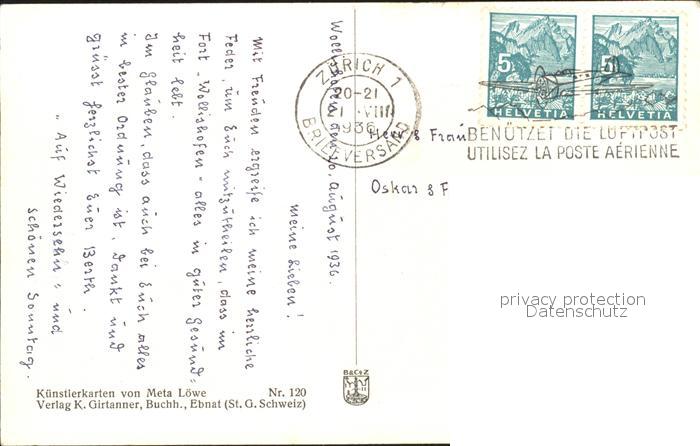 Wollishofen den 20. August 1936.
Meine Lieben!
Mit Freuden ergreife ich meine herzliche
Feder, um Euch mitzutheilen, dass im
Fort-Wollishofen- alles in guter Gesund=
heit lebt.
Im glauben, dass auch bei Euch alles
in bester Ordnung ist, dankt und
grüsst herzlichst Euer Berth.
"Auf Wiedersehn" und
schönen Sonntag.
Künstlerkarten von Meta Löwe Nr. 120
Verlag K. Girtanner, Buchh., Ebnat (St. G. Schweiz)
B&C°Z
ZÜRICH 1
20-21
21. VIII
1936
BRIEFVERSAND
5
5
HELVETIA
HELVETIA
BENÜTZET DIE LUFTPOST
UTILISEZ LA POSTE AÉRIENNE
Herr & Frau
Oskar & F
privacy protection
Datenschutz